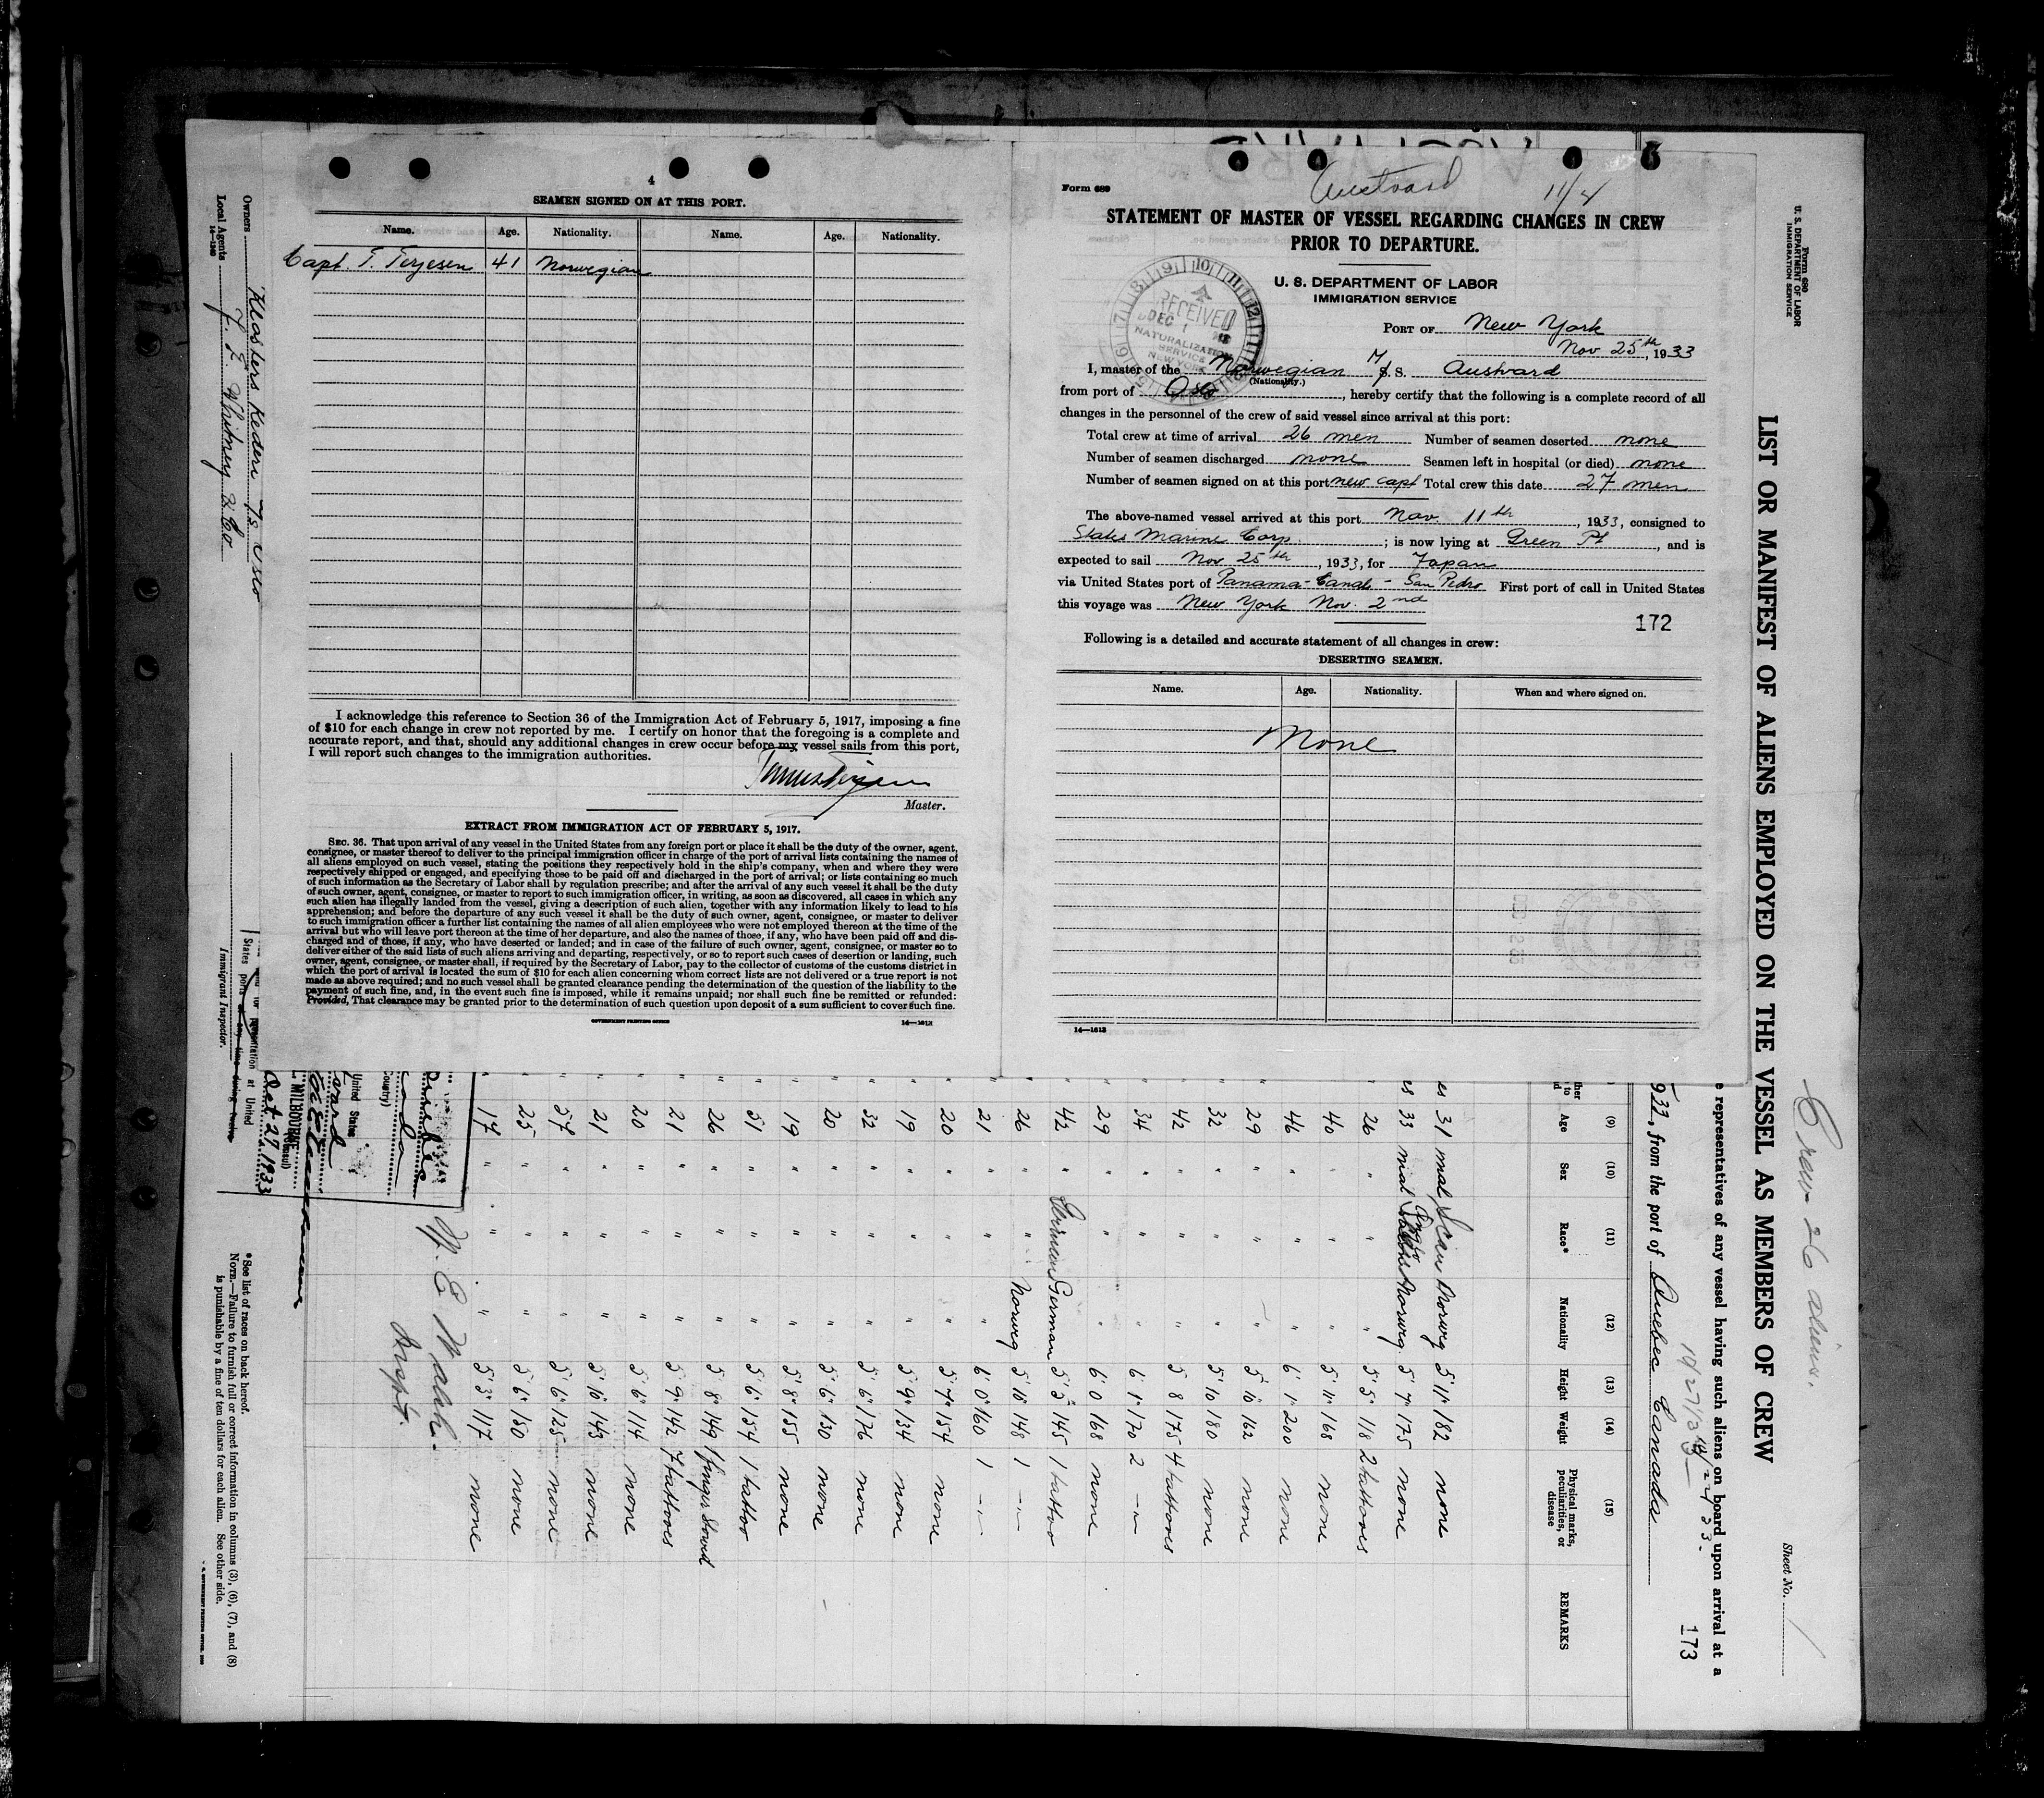 4
SEAMEN SIGNED ON AT THIS PORT.
Name. Age. Nationality. Name. Age. Nationality.
Capt. T. Terjesen 41 Norwegian
I acknowledge this reference to Section 36 of the Immigration Act of February 5, 1917, imposing a fine
of $10 for each change in crew not reported by me. I certify on honor that the foregoing is a complete and
accurate report, and that, should any additional changes in crew occur before my vessel sails from this port,
I will report such changes to the immigration authorities.
Master.
EXTRACT FROM IMMIGRATION ACT OF FEBRUARY 5, 1917.
SEC. 36. That upon arrival of any vessel in the United States from any foreign port or place it shall be the duty of the owner, agent,
consignee, or master thereof to deliver to the principal immigration officer in charge of the port of arrival lists containing the names of
all aliens employed on such vessel, stating the positions they respectively hold in the ship's company, when and where they were
respectively shipped or engaged, and specifying those to be paid off and discharged in the port of arrival; or lists containing so much
of such information as the Secretary of Labor shall by regulation prescribe; and after the arrival of any such vessel it shall be the duty
of such owner, agent, consignee, or master to report to such immigration officer, in writing, as soon as discovered, all cases in which any
such alien has illegally landed from the vessel, giving a description of such alien, together with any information likely to lead to his
apprehension; and before the departure of any such vessel it shall be the duty of such owner, agent, consignee, or master to deliver
to such immigration officer a further list containing the names of all alien employees who were not employed thereon at the time of the
arrival but who will leave port thereon at the time of her departure, and also the names of those, if any, who have been paid off and dis-
charged and of those, if any, who have deserted or landed; and in case of the failure of such owner, agent, consignee, or master so to
deliver either of the said lists of such aliens arriving and departing, respectively, or so to report such cases of desertion or landing, such
owner, agent, consignee, or master shall, if required by the Secretary of Labor, pay to the collector of customs of the customs district in
which the port of arrival is located the sum of $10 for each alien concerning whom correct lists are not delivered or a true report is not
made as above required; and no such vessel shall be granted clearance pending the determination of the question of the liability to the
payment of such fine, and, in the event such fine is imposed, while it remains unpaid; nor shall such fine be remitted or refunded:
Provided, That clearance may be granted prior to the determination of such question upon deposit of a sum sufficient to cover such fine.
GOVERNMENT PRINTING OFFICE 14—1613
Form 689 Austvard 11/4
STATEMENT OF MASTER OF VESSEL REGARDING CHANGES IN CREW
PRIOR TO DEPARTURE.
U. S. DEPARTMENT OF LABOR
IMMIGRATION SERVICE
RECEIVED
DEC 1
NATURALIZATION
SERVICE
NEW YORK
PORT OF New York
Nov 25th, 1933
I, master of the Norwegian M/S. S. Austvard
(Nationality.)
from port of Oslo, hereby certify that the following is a complete record of all
changes in the personnel of the crew of said vessel since arrival at this port:
Total crew at time of arrival 26 men Number of seamen deserted none
Number of seamen discharged none Seamen left in hospital (or died) none
Number of seamen signed on at this port new capt Total crew this date 27 men
The above-named vessel arrived at this port Nov. 11th, 1933, consigned to
States Marine Corp.; is now lying at Green Pt, and is
expected to sail Nov. 25th, 1933, for Japan
via United States port of Panama-Canal - San Pedro First port of call in United States
this voyage was New York Nov. 2nd
172
Following is a detailed and accurate statement of all changes in crew:
DESERTING SEAMEN.
Name. Age. Nationality. When and where signed on.
None
14—1613
Form 680
U. S. DEPARTMENT OF LABOR
IMMIGRATION SERVICE
Crew 26 aliens.
Sheet No. 1
LIST OR MANIFEST OF ALIENS EMPLOYED ON THE VESSEL AS MEMBERS OF CREW
e representatives of any vessel having such aliens on board upon arrival at a
173
933, from the port of Quebec Canada
(9) (10) (11) (12) (13) (14) (15)
Age Sex Race* Nationality Height Weight Physical marks, peculiarities, or disease REMARKS
es 31 mal Scan Norwg 5'11" 182 none
es 33 mal Norwg 5'7" 175 none
26 " " " 5'5" 118 2 tattooes
40 " " " 5'11" 168 none
46 " " " 6'1" 200 none
29 " " 5'10" 162 none
32 " " " 5'10 180 none
42 " " " 5'8 175 4 tattooes
34 " " " 6'1" 170 2 -"-
29 " " " 6'0 168 none
42 " German German 5'3" 145 1 tattoo
26 " " Norwg 5'10" 148 1 -"-
21 " " " 6'0" 160 1 -"-
20 " " " 5'7" 154 none
19 " " " 5'9" 134 none
32 " " " 5'6" 176 none
20 " " " 5'6" 130 none
19 " " " 5'8" 155 none
51 " " " 5'6" 154 1 tattoo
26 " " " 5'8" 149 1 finger
21 " " " 5'9" 142 7 tattooes
20 " " " 5'6" 114 none
21 " " " 5'10" 143 none
57 " " " 5'6" 125 none
25 " " " 5'6" 150 none
17 " " " 5'3" 117 none
W. E. Walsh.
Inspt.
(Country)
United States
MILBOURNE
(Consul)
Oct 27 1933
Owners Klosters Rederi A/S Oslo
Local Agents J. E. Whitney & Co
14—1240
Immigrant Inspector.
*See list of races on back hereof.
NOTE.—Failure to furnish full or correct information in columns (3), (6), (7), and (8)
is punishable by a fine of ten dollars for each alien. See other side.